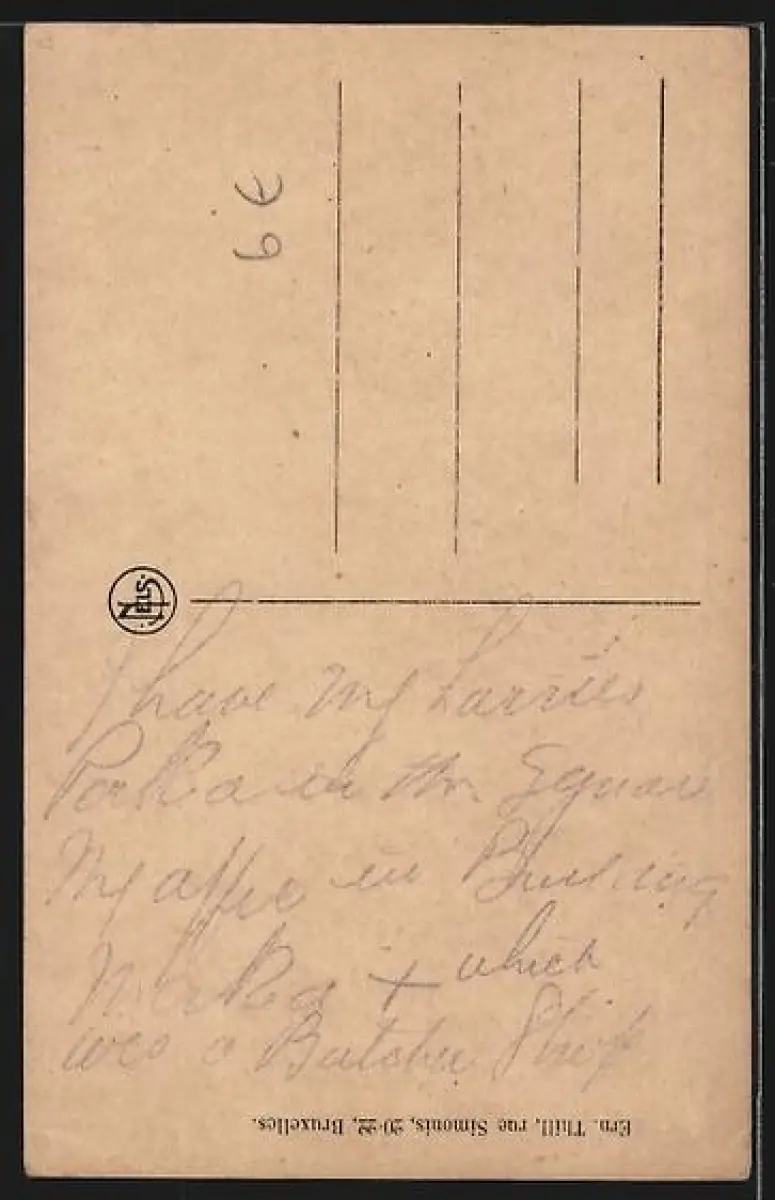 6 €
NELS
I have my Lorries
Parked in the Square
My office in Building
Marked + which
was a Butcher Shop
Ern. Thill, rue Simonis, 20-22, Bruxelles.